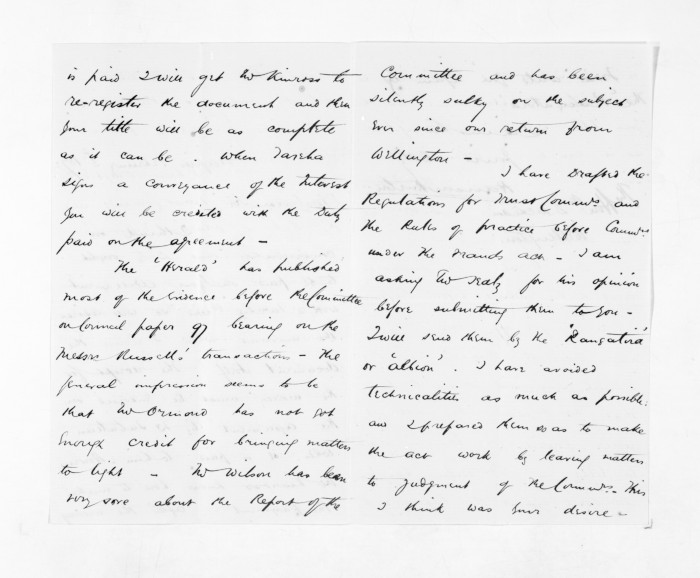 is paid I will get Mr Kinross to
re-register the document and then
your title will be as complete
as it can be. When Tareha
signs a conveyance of the Interest
you will be credited with the Duty
paid on the agreement —
The "Herald" has published
most of the Evidence before the Committee
on Council paper 97 bearing on the
Messrs Russell's transactions — The
general impression seems to be
that Mr Ormond has not got
Enough credit for bringing matters
to light — Mr Wilson has been
very sore about the Report of the
Committee and has been
silently sulky on the subject
Ever since our return from
Wellington —
I have Drafted the
Regulations for Trust Commrs and
the Rules of practice before Commrs
under the Frauds act — I am
asking Mr for his opinion
before submitting them to you —
I will send them by the "Rangatira"
or "Albion". I have avoided
Technicalities as much as possible
and prepared them so as to make
the act work by leaving matters
to judgment of the Commrs — This
I think was your desire —